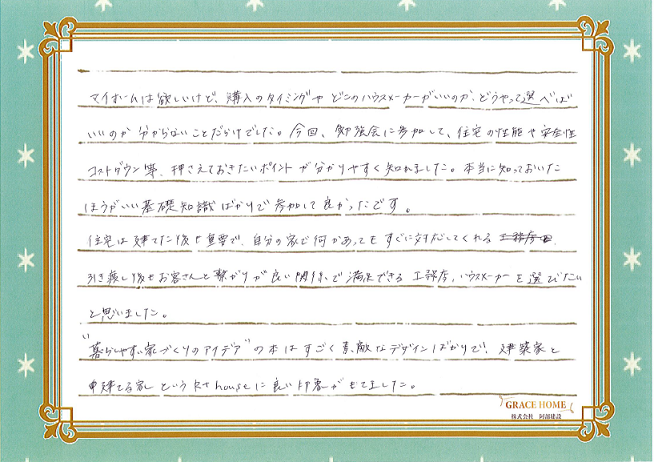 マイホームは欲しいけど、購入のタイミングや どこのハウスメーカーがいいのか、どうやって選べば
いいのか 分からないことだらけでした。今回、勉強会に参加して、住宅の性能や安全性
コストダウン等、押さえておきたいポイントが分かりやすく知れました。本当に知っておいた
ほうがいい基礎知識ばかりで参加して良かったです。
住宅は建てた後も重要で、自分の家で何かあってもすぐに対応してくれる
引き渡し後もお客さんと繋がりが良い関係で満足できる 工務店、ハウスメーカーを選びたい
と思いました。
"暮らしやすい家づくりのアイデア"の本はすごく素敵なデザインばかりで!建築家と
建てる家 という R+houseに良い印象がもてました。
GRACE HOME
株式会社 阿部建設